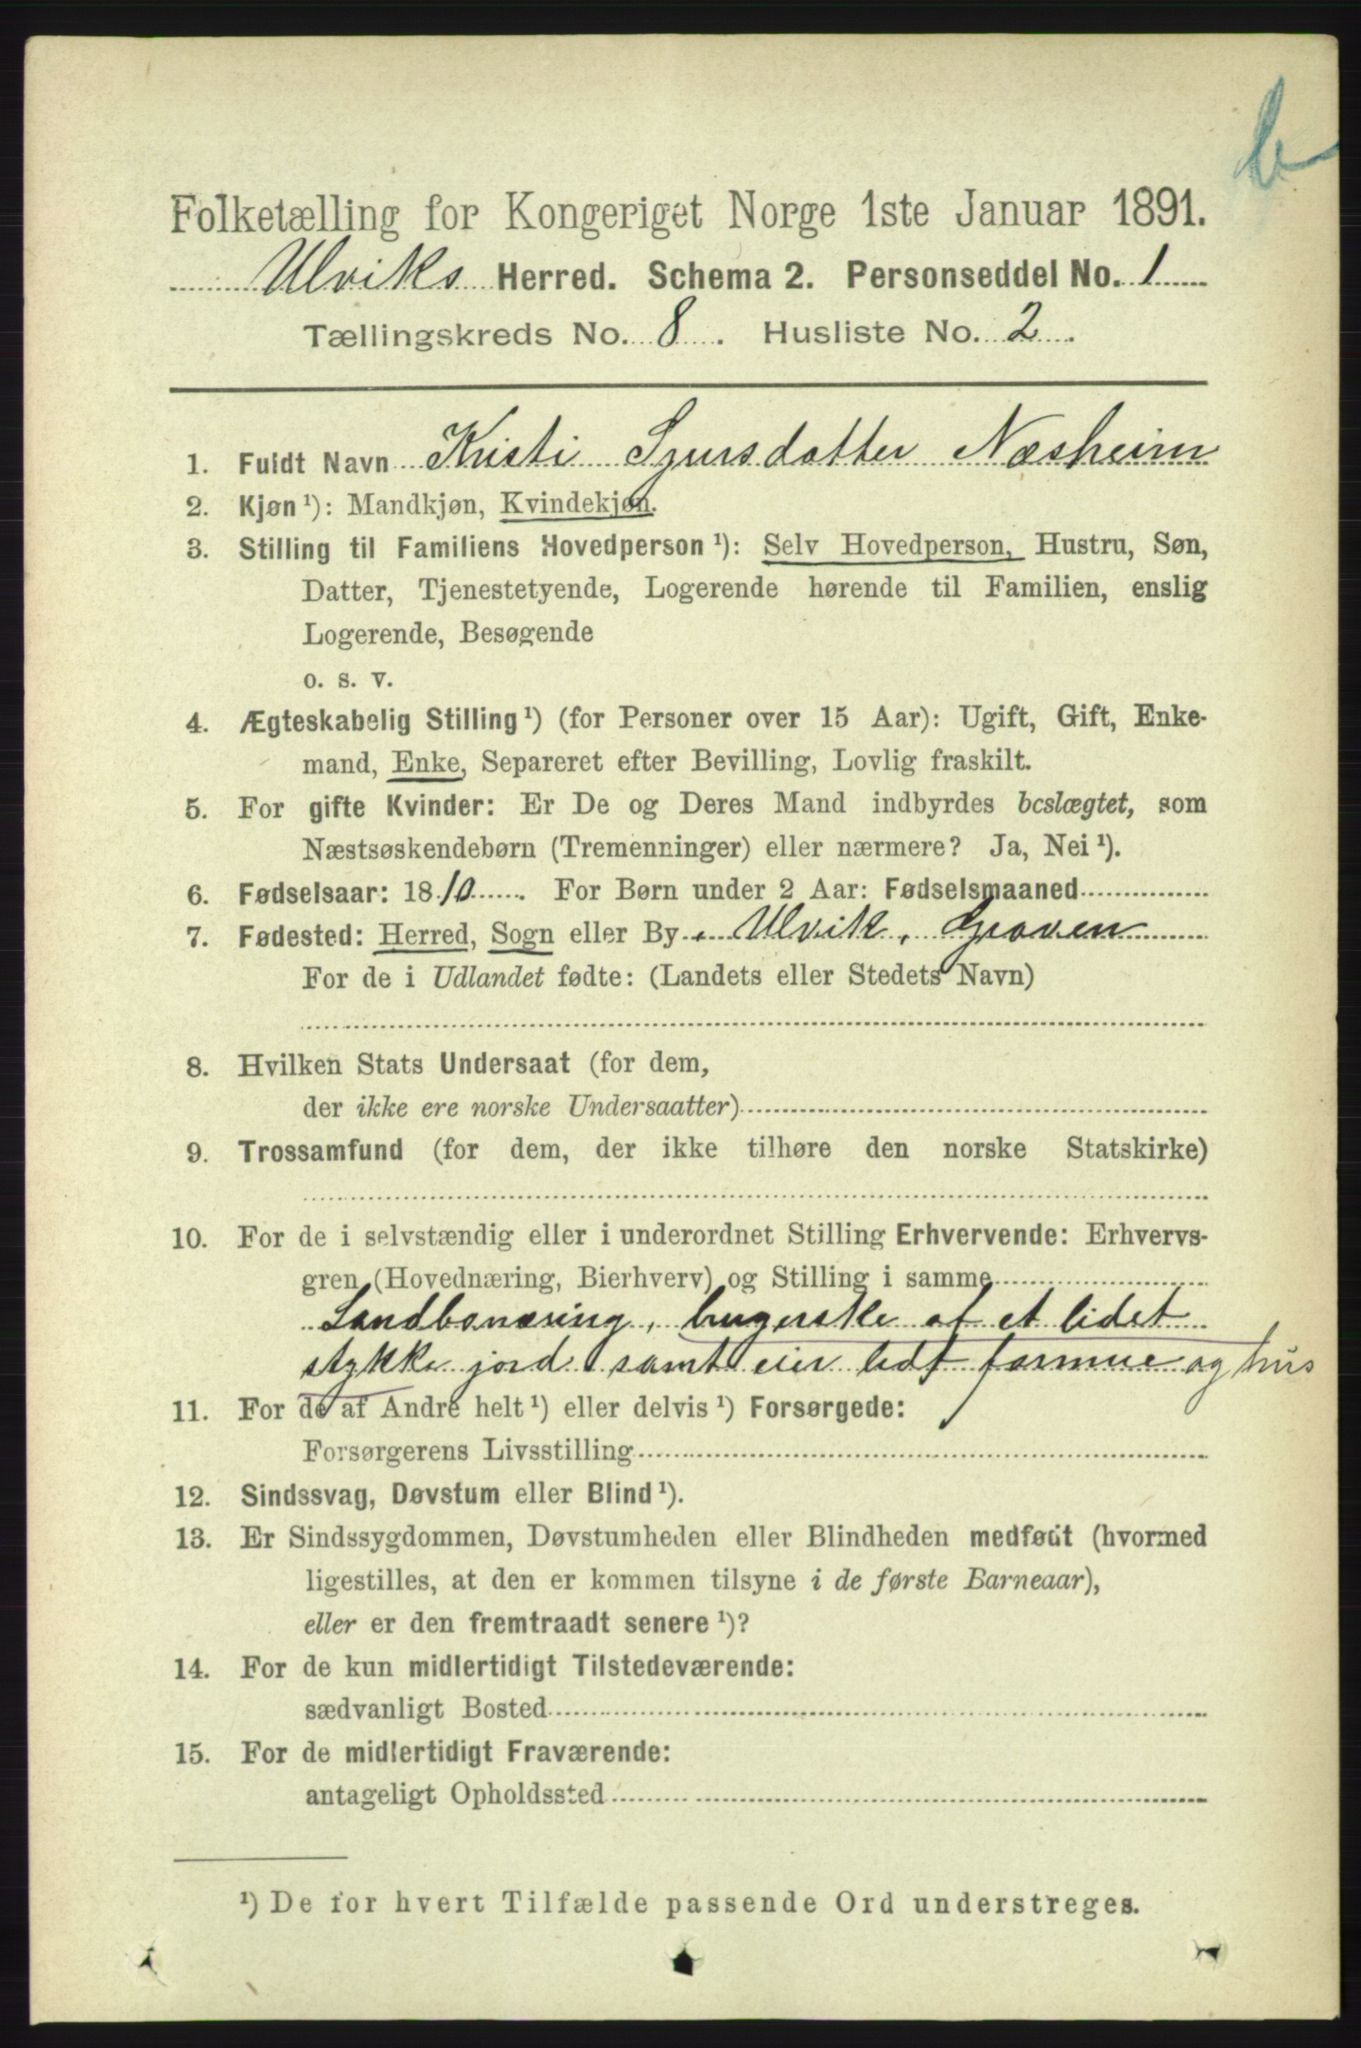 b
Folketælling for Kongeriget Norge 1ste Januar 1891.
Ulviks Herred. Schema 2. Personseddel No. 1
Tællingskreds No. 8. Husliste No. 2.
1. Fuldt Navn Kristi Sjursdatter Næsheim
2. Kjøn ¹): Mandkjøn, Kvindekjøn.
3. Stilling til Familiens Hovedperson ¹): Selv Hovedperson, Hustru, Søn,
Datter, Tjenestetyende, Logerende hørende til Familien, enslig
Logerende, Besøgende
o. s. v.
4. Ægteskabelig Stilling ¹) (for Personer over 15 Aar): Ugift, Gift, Enke-
mand, Enke, Separeret efter Bevilling, Lovlig fraskilt.
5. For gifte Kvinder: Er De og Deres Mand indbyrdes beslægtet, som
Næstsøskendebørn (Tremenninger) eller nærmere? Ja, Nei ¹).
6. Fødselsaar: 1810. For Børn under 2 Aar: Fødselsmaaned
7. Fødested: Herred, Sogn eller By, Ulvik, Graven
For de i Udlandet fødte: (Landets eller Stedets Navn)
8. Hvilken Stats Undersaat (for dem,
der ikke ere norske Undersaatter)
9. Trossamfund (for dem, der ikke tilhøre den norske Statskirke)
10. For de i selvstændig eller i underordnet Stilling Erhvervende: Erhvervs-
gren (Hovednæring, Bierhverv) og Stilling i samme
Landbonæring, brugerske af et lidet
stykke jord samt eier lidt formue og hus
11. For de af Andre helt ¹) eller delvis ¹) Forsørgede:
Forsørgerens Livsstilling
12. Sindssvag, Døvstum eller Blind ¹).
13. Er Sindssygdommen, Døvstumheden eller Blindheden medfødt (hvormed
ligestilles, at den er kommen tilsyne i de første Barneaar),
eller er den fremtraadt senere ¹)?
14. For de kun midlertidigt Tilstedeværende:
sædvanligt Bosted
15. For de midlertidigt Fraværende:
antageligt Opholdssted
¹) De for hvert Tilfælde passende Ord understreges.